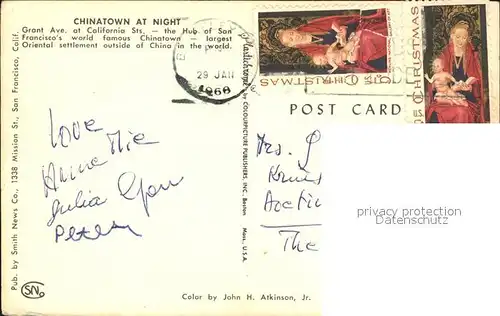 CHINATOWN AT NIGHT
Grant Ave. at California Sts. — the Hub of San
Francisco's world famous Chinatown — largest
Oriental settlement outside of China in the world.
Pub. by Smith News Co., 1338 Mission St., San Francisco, Calif.
Plastichrome
by COLOURPICTURE PUBLISHERS, INC., Boston
Mass., U.S.A.
29 JAN
1968
CHRISTMAS
5c
U.S.
CHRISTMAS
POST CARD
Love
Anne
Julia
Peter
Mrs.
The
privacy protection
Datenschutz
SN
Color by John H. Atkinson, Jr.